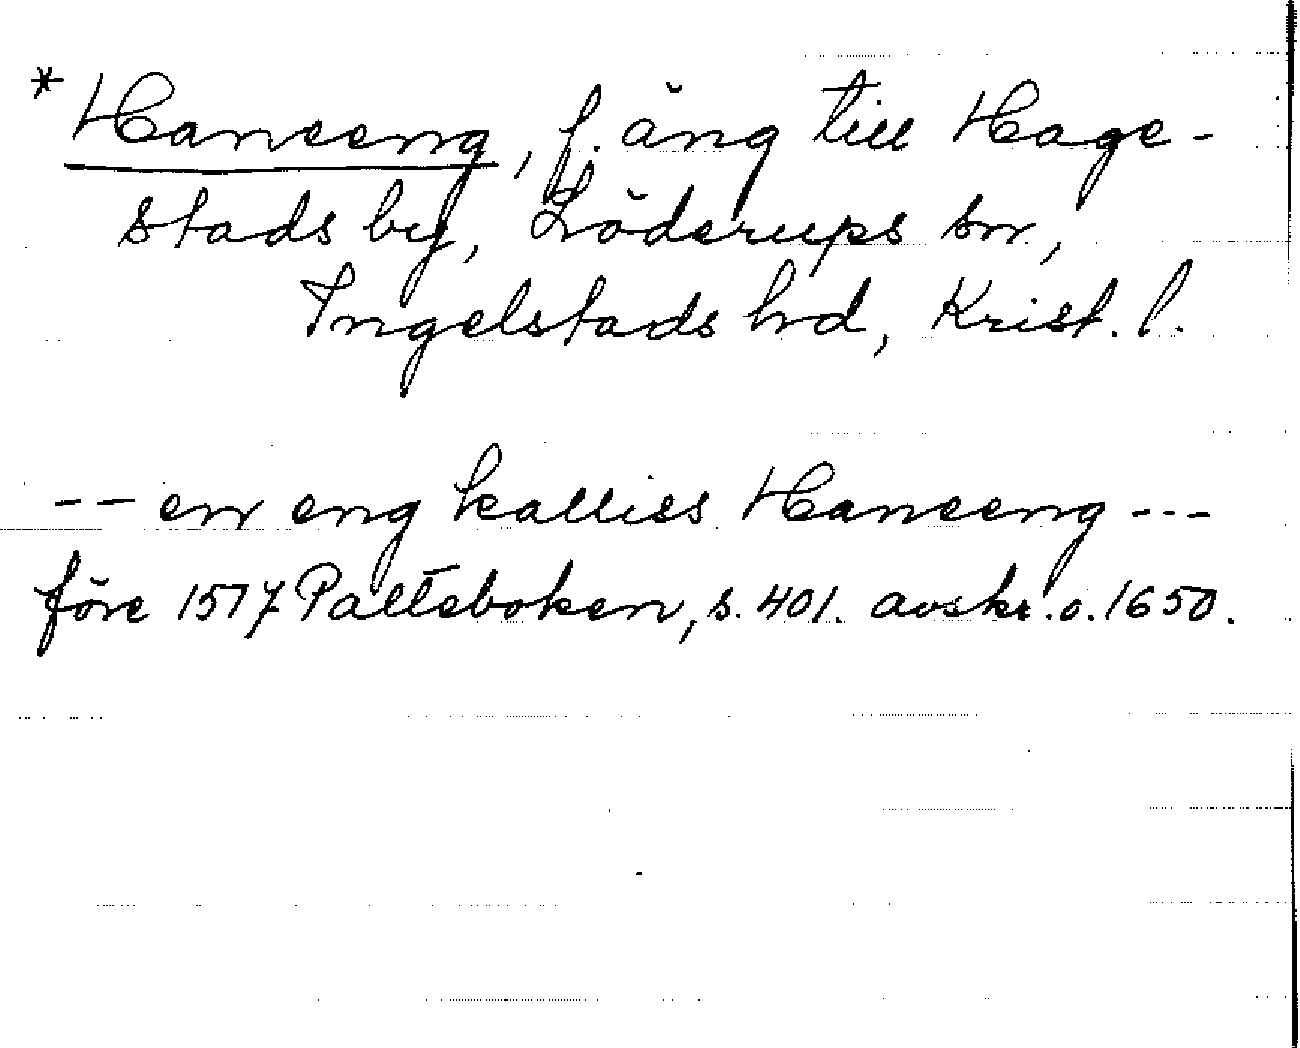 *Haneeng, f. äng till Hage-
stads by, Löderups sn,
Ingelstads hrd, Krist. l.
-- en eng kalliss Haneeng ---
före 1517 Palteboken, s. 401. avskr. o. 1650.